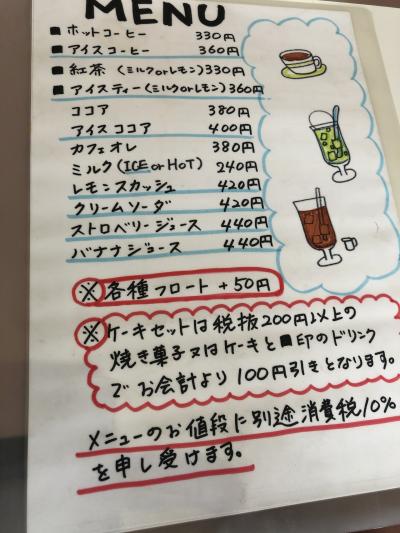 MENU
■ ホットコーヒー 330円
■ アイスコーヒー 360円
■ 紅茶 (ミルクorレモン) 330円
■ アイスティー(ミルクorレモン) 360円
ココア 380円
アイスココア 400円
カフェオレ 380円
ミルク(ICE or HOT) 240円
レモンスカッシュ 420円
クリームソーダ 420円
ストロベリージュース 440円
バナナジュース 440円
※ 各種フロート +50円
※ ケーキセットは税抜200円以上の
焼き菓子又はケーキと■印のドリンク
でお会計より100円引きとなります。
メニューのお値段に別途消費税10%
を申し受けます。